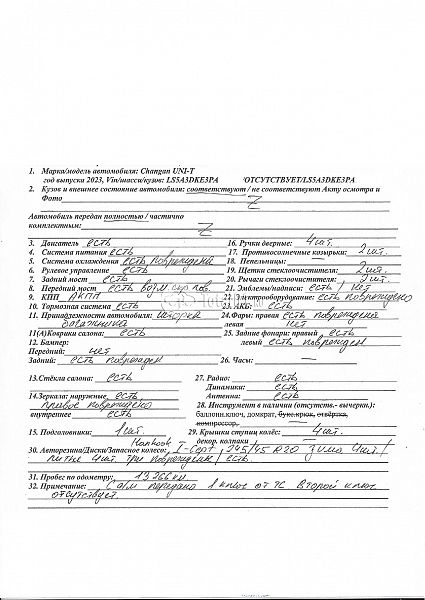 1. Марка/модель автомобиля: Changan UNI-T
год выпуска 2023, Vin/шасси/кузов: LS5A3DKE3PA /ОТСУТСТВУЕТ/LS5A3DKE3PA
2. Кузов и внешнее состояние автомобиля: соответствуют / не соответствуют Акту осмотра и
Фото Z
Автомобиль передан полностью / частично
комплектным: Z
3. Двигатель есть 16. Ручки дверные: 4 шт.
4. Система питания есть 17. Противосолнечные козырьки: 2 шт.
5. Система охлаждения есть повреждена 18. Пепельницы: —
6. Рулевое управление есть 19. Щетки стеклоочистителя: 2 шт.
7. Задний мост есть 20. Рычаги стеклоочистителя: 2 шт.
8. Передний мост есть возм. скр. пов. 21. Эмблемы/надписи: есть / нет
9. КПП АКПП 22. Электрооборудование: есть повреждено
10. Тормозная система есть 23. АКБ: есть
11. Принадлежности автомобиля: шторка 24. Фары: правая есть повреждена
багажника левая нет
11(А) Коврики салона: есть 25. Задние фонари: правый есть
12. Бампер: левый есть поврежден
Передний: нет
Задний: есть поврежден 26. Часы: —
13. Стёкла салона: есть 27. Радио: есть
Динамики: есть
14. Зеркала: наружные есть Антенна: есть
правое повреждено 28. Инструмент в наличии (отсутств.- вычеркн.):
внутреннее есть баллон.ключ, домкрат, букс.крюк, отвёртка,
компрессор,
15. Подголовники: 1 шт. 29. Крышки ступиц колёс: 4 шт.
декор. колпаки —
30. Авторезина/Диски/Запасное колесо: Hankook I-Cept, 245/45 R20 зима 4 шт /
литые 4 шт. три повреждены / есть.
31. Пробег по одометру: 13 266 км.
32. Примечание: С а/м передано 1 ключ от ТС Второй ключ
отсутствует.